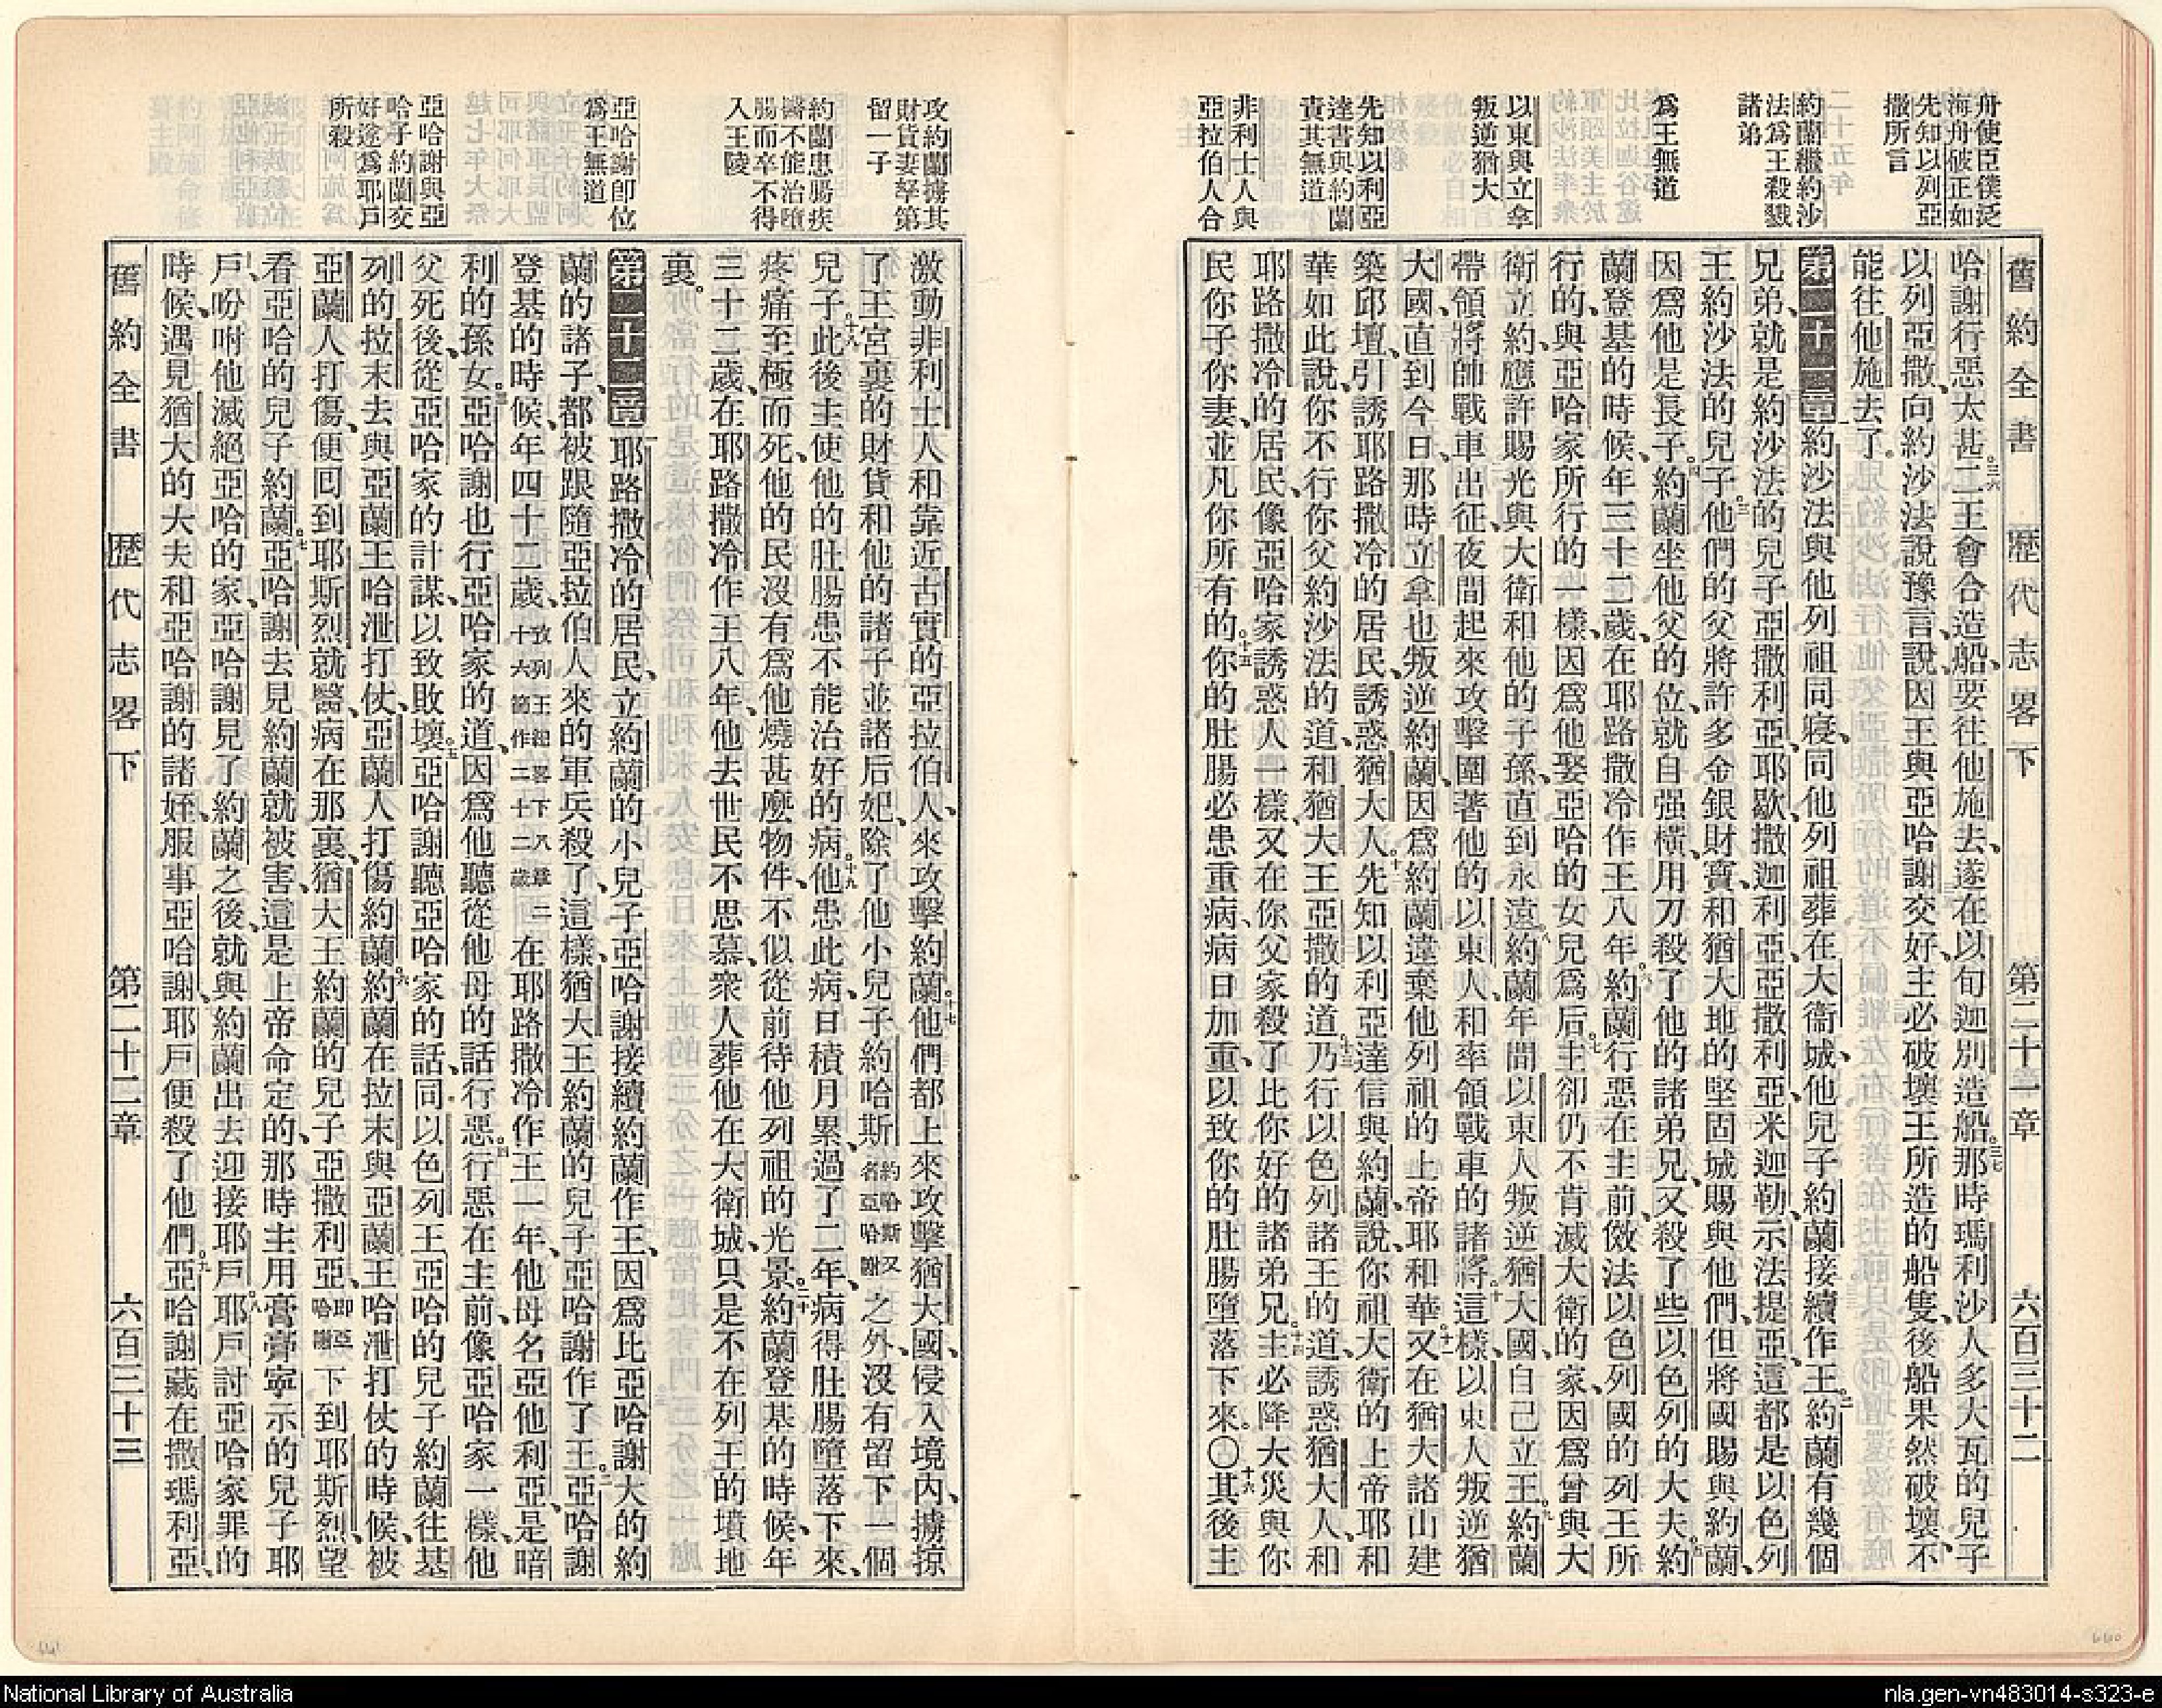 舊約全書 歷代志畧下 第二十一章 六百三十二
舟使臣僕泛
海舟破正如
先知以列亞
撒所言
約蘭繼約沙
法爲王殺戮
諸弟
爲王無道
以東與立拿
叛逆猶大
先知以利亞
達書與約蘭
責其無道
非利士人與
亞拉伯人合
哈謝行惡太甚。三六二王會合造船、要往他施去、遂在以旬迦別造船。三七那時瑪利沙人多大瓦的兒子
以列亞撒、向約沙法說豫言、說、因王與亞哈謝交好、主必破壞王所造的船隻、後船果然破壞、不
能往他施去了。
第二十一章 一約沙法與他列祖同寢、同他列祖葬在大衞城、他兒子約蘭接續作王。二約蘭有幾個
兄弟、就是約沙法的兒子亞撒利亞、耶歇、撒迦利亞、亞撒利亞、米迦勒、示法提亞、這都是以色列
王約沙法的兒子。三他們的父將許多金銀財寶、和猶大地的堅固城賜與他們、但將國賜與約蘭、
因爲他是長子。四約蘭坐他父的位、就自强橫、用刀殺了他的諸弟兄、又殺了些以色列的大夫。五約
蘭登基的時候、年三十二歲、在耶路撒冷作王八年。六約蘭行惡在主前、傚法以色列國的列王所
行的、與亞哈家所行的一樣、因爲他娶亞哈的女兒爲后。七主卻仍不肯滅大衞的家、因爲曾與大
衞立約、應許賜光與大衞和他的子孫、直到永遠。八約蘭年間以東人叛逆猶大國、自己立王。九約蘭
帶領將帥戰車出征、夜間起來攻擊圍著他的以東人、和率領戰車的諸將。十這樣、以東人叛逆猶
大國、直到今日、那時立拿也叛逆約蘭、因爲約蘭違棄他列祖的上帝耶和華。十一又在猶大諸山建
築邱壇、引誘耶路撒冷的居民、誘惑猶大人。十二先知以利亞達信與約蘭、說、你祖大衞的上帝耶和
華如此說、你不行你父約沙法的道、和猶大王亞撒的道。十三乃行以色列諸王的道、誘惑猶大人、和
耶路撒冷的居民、像亞哈家誘惑人一樣、又在你父家殺了比你好的諸弟兄。十四主必降大災與你
民你子你妻、並凡你所有的。十五你的肚腸必患重病、病日加重、以致你的肚腸墮落下來。〇十六其後主
攻約蘭擄其
財貨妻孥第
留一子
約蘭患腸疾
醫不能治墮
腸而卒不得
入王陵
亞哈謝卽位
爲王無道
亞哈謝與亞
哈子約蘭交
好遂爲耶戶
所殺
激動非利士人和靠近古實的亞拉伯人、來攻擊約蘭。十七他們都上來攻擊猶大國、侵入境內、擄掠
了王宮裏的財貨和他的諸子並諸后妃、除了他小兒子約哈斯約哈斯又名亞哈謝之外、沒有留下一個
兒子。十八此後主使他的肚腸患不能治好的病。十九他患此病、日積月累、過了二年、病得肚腸墮落下來、
疼痛至極而死、他的民沒有爲他燒甚麼物件、不似從前待他列祖的光景。二十約蘭登基的時候、年
三十二歲、在耶路撒冷作王八年、他去世民不思慕、衆人葬他在大衞城、只是不在列王的墳地
裏。
第二十二章 一耶路撒冷的居民、立約蘭的小兒子亞哈謝接續約蘭作王、因爲比亞哈謝大的約
蘭的諸子、都被跟隨亞拉伯人來的軍兵殺了、這樣、猶大王約蘭的兒子亞哈謝作了王。二亞哈謝
登基的時候、年四十二歲、攷列王紀畧下八章二十六節作二十二歲在耶路撒冷作王一年、他母名亞他利亞、是暗
利的孫女。三亞哈謝也行亞哈家的道、因爲他聽從他母的話行惡。四行惡在主前、像亞哈家一樣、他
父死後、從亞哈家的計謀、以致敗壞。五亞哈謝聽亞哈家的話、同以色列王亞哈的兒子約蘭往基
列的拉末去、與亞蘭王哈泄打仗、亞蘭人打傷約蘭。六約蘭在拉末與亞蘭王哈泄打仗的時候、被
亞蘭人打傷、便回到耶斯烈就醫、病在那裏、猶大王約蘭的兒子亞撒利亞、卽亞哈謝下到耶斯烈、望
看亞哈的兒子約蘭。七亞哈謝去見約蘭就被害、這是上帝命定的、那時主用膏膏寧示的兒子耶
戶、吩咐他滅絕亞哈的家、亞哈謝見了約蘭之後、就與約蘭出去迎接耶戶。八耶戶討亞哈家罪的
時候、遇見猶大的大夫和亞哈謝的諸姪、服事亞哈謝、耶戶便殺了他們。九亞哈謝藏在撒瑪利亞、
舊約全書 歷代志畧下 第二十二章 六百三十三
641
640
National Library of Australia
nla.gen-vn483014-s323-e